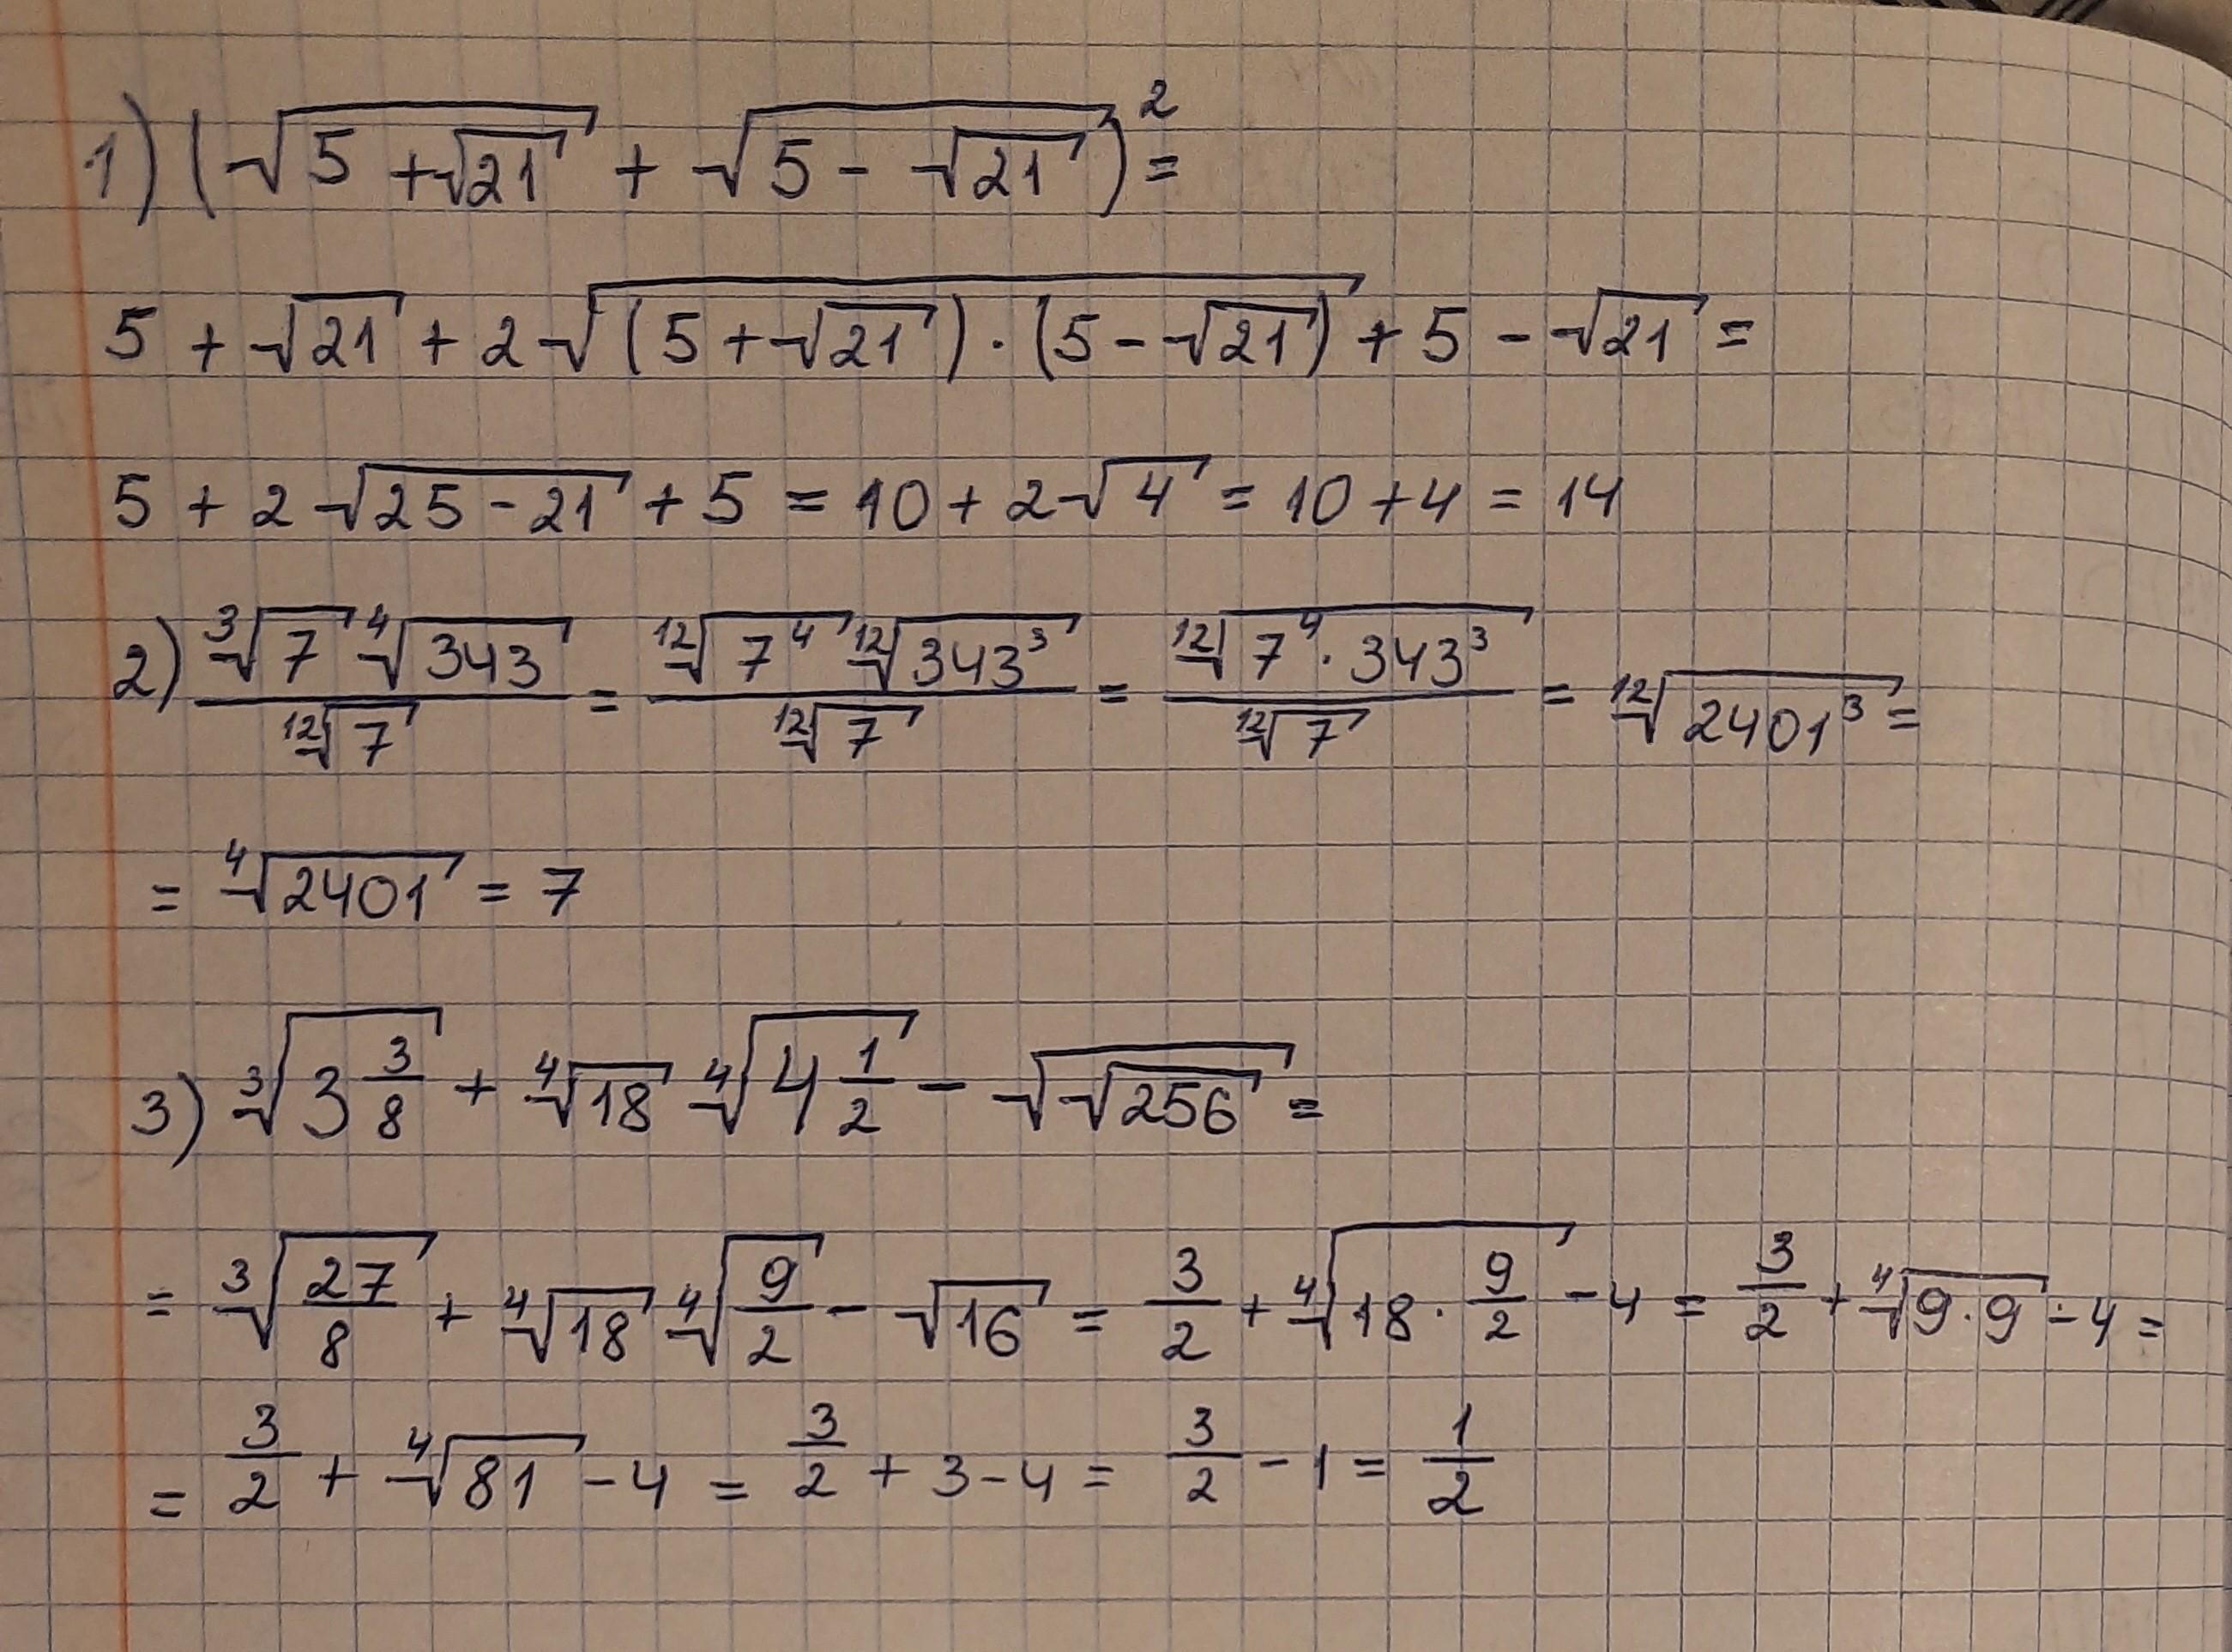 1) (√(5 + √21) + √(5 - √21))² =
5 + √21 + 2√((5 + √21) · (5 - √21)) + 5 - √21 =
5 + 2√(25 - 21) + 5 = 10 + 2√4 = 10 + 4 = 14
2) (∛7 ∜343)/(¹²√7) = (¹²√(7⁴) ¹²√(343³))/(¹²√7) = (¹²√(7⁴ · 343³))/(¹²√7) = ¹²√(2401³) =
= ∜2401 = 7
3) ∛(3 3/8) + ∜18 ∜(4 1/2) - √(√256) =
= ∛(27/8) + ∜18 ∜(9/2) - √16 = 3/2 + ∜(18 · 9/2) - 4 = 3/2 + ∜(9 · 9) - 4 =
= 3/2 + ∜81 - 4 = 3/2 + 3 - 4 = 3/2 - 1 = 1/2